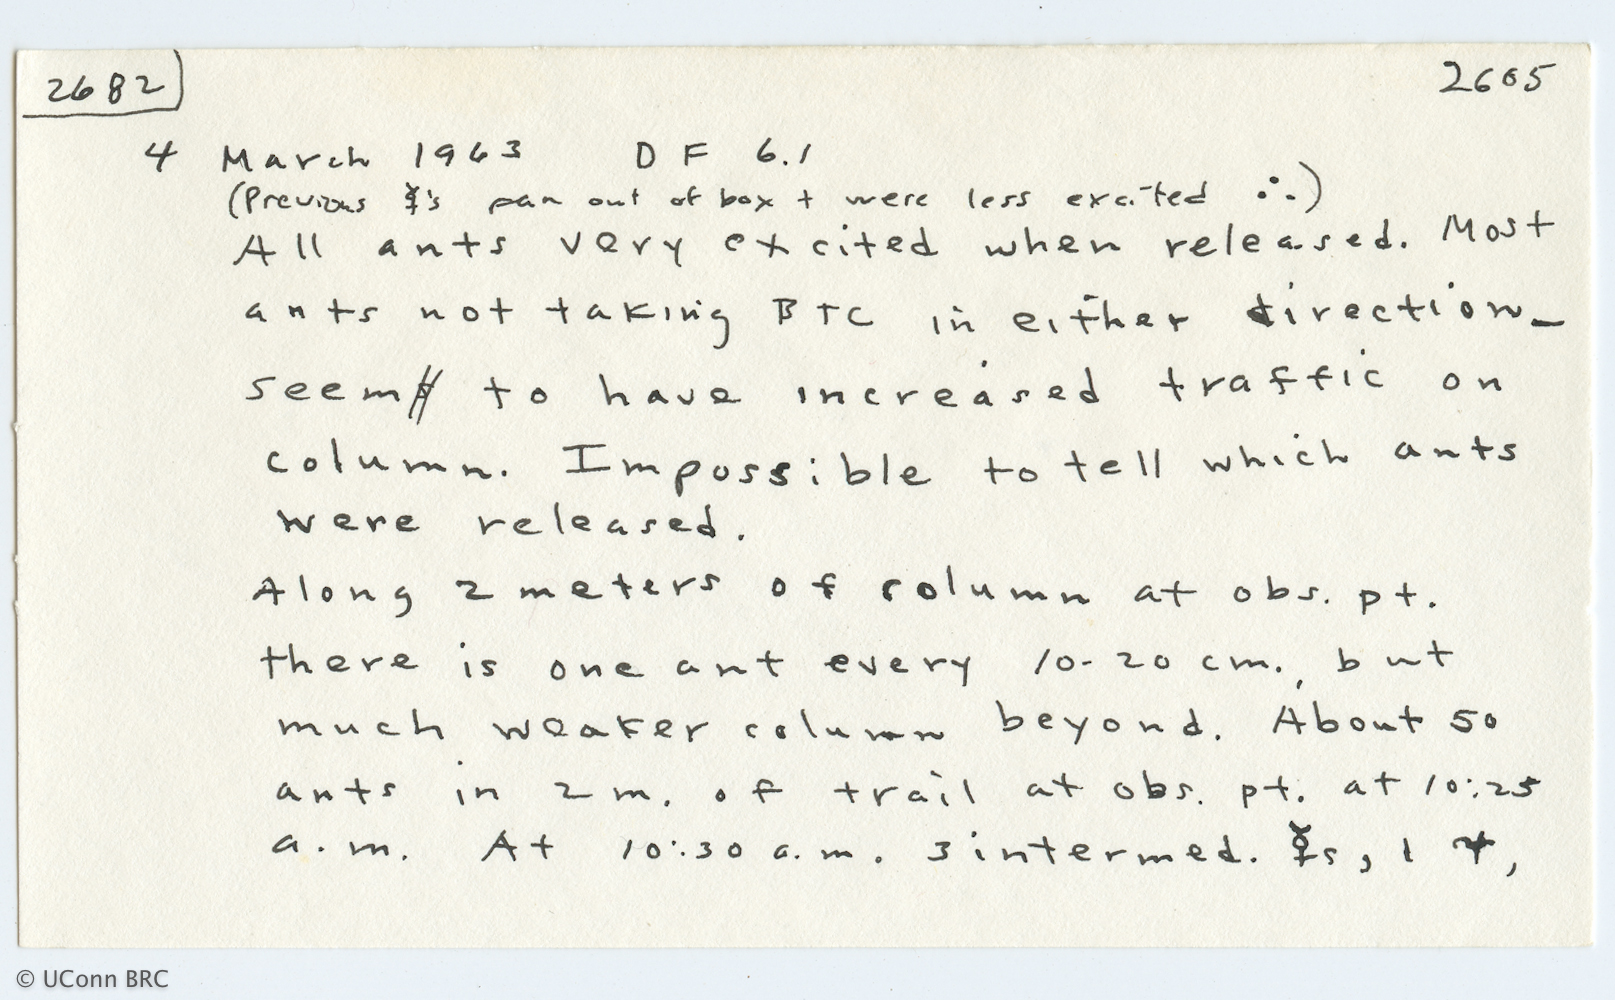 2682 2605
4 March 1963 DF 6.1
(Previous ☿'s ran out of box + were less excited ∴)
All ants very excited when released. Most
ants not taking BTC in either direction_
seem to have increased traffic on
column. Impossible to tell which ants
were released.
Along 2 meters of column at obs. pt.
there is one ant every 10-20 cm., but
much weaker column beyond. About 50
ants in 2 m. of trail at obs. pt. at 10:25
a.m. At 10:30 a.m. 3 intermed. ☿s, 1 ♆,
© UConn BRC